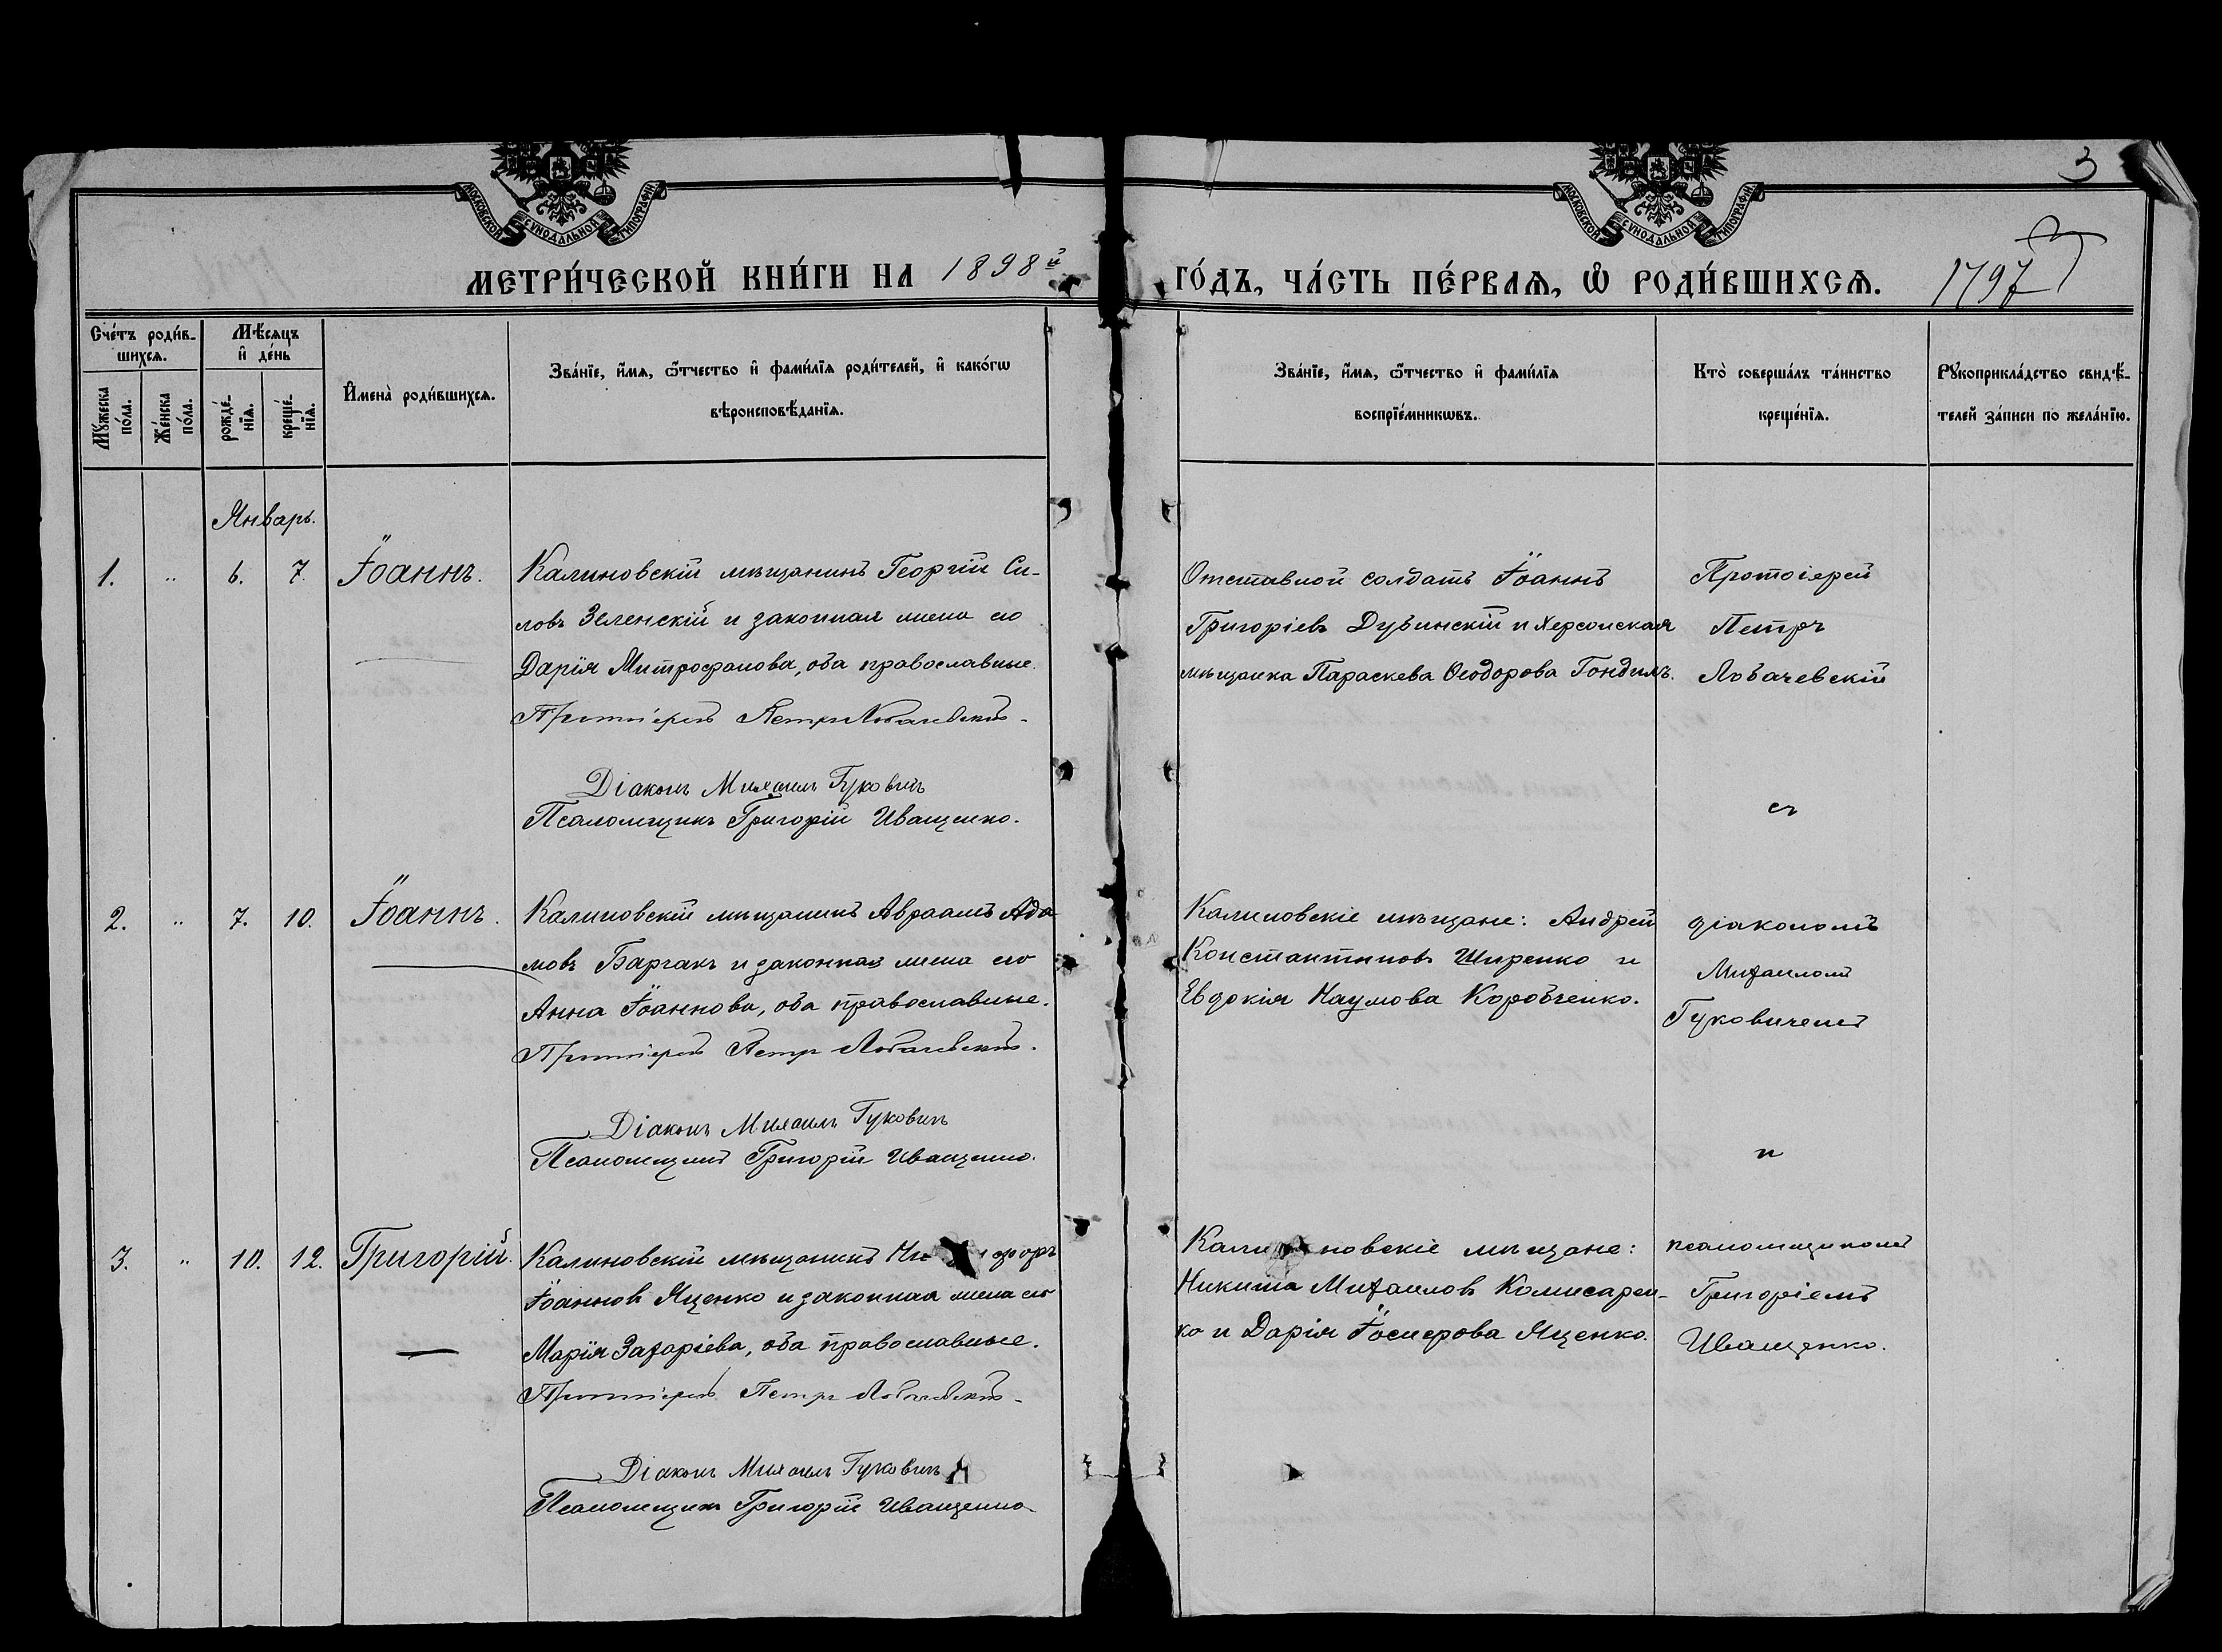 МОСКОВСКОЙ СѴНОДАЛЬНОЙ ТИПОГРАФІИ
МОСКОВСКОЙ СѴНОДАЛЬНОЙ ТИПОГРАФІИ
3
МЕТРИ́ЧЕСКОЙ КНИ́ГИ НА 1898й
ГО́ДЪ, ЧА́СТЬ ПЕ́РВАѦ, Ѡ҆ РОДИ́ВШИХСѦ.
1797
Сче́тъ роди́в-
шихсѧ.
Мѣ́сѧцъ
и҆ де́нь
Мꙋ́жеска
по́ла.
Же́нска
по́ла.
рожде́-
нїѧ.
креще́-
нїѧ.
И҆мена̀ роди́вшихсѧ.
Зва́нїе, и҆́мѧ, ѻ҆́тчество и҆ фами́лїѧ роди́телей, и҆ како́гѡ
вѣроисповѣ́данїѧ.
Зва́нїе, и҆́мѧ, ѻ҆́тчество и҆ фами́лїѧ
воспрїе́мникѡвъ.
Кто̀ соверша́лъ та́инство
креще́нїѧ.
Рꙋкоприкла́дство свидѣ́-
телей за́писи по жела́нїю.
Январь.
1. " 6. 7. Іоаннъ.
Калиновскій мѣщанинъ Георгій Си-
ловъ Зеленскій и законная жена его
Дарія Митрофанова, оба православные.
Протоіерей Петръ Лобачевскій
Діаконъ Михаилъ Гуковичъ
Псаломщикъ Григорій Иващенко.
Отставной солдатъ Іоаннъ
Григоріевъ Дубинскій и Херсонская
мѣщанка Параскева Ѳеодорова Гондилъ.
Протоіерей
Петръ
Лобачевскій
съ
2. " 7. 10. Іоаннъ.
Калиновскій мѣщанинъ Авраамъ Ада
мовъ Баргакъ и законная жена его
Анна Іоаннова, оба православные.
Протоіерей Петръ Лобачевскій.
Діаконъ Михаилъ Гуковичъ
Псаломщикъ Григорій Иващенко.
Калиновскіе мѣщане: Андрей
Константиновъ Ширенко и
Евдокія Наумова Коробченко.
діакономъ
Михаиломъ
Гуковичемъ
и
3. " 10. 12. Григорій.
Калиновскій мѣщанинъ Никифоръ
Іоанновъ Яценко и законная жена его
Марія Захаріева, оба православные.
Протоіерей Петръ Лобачевскій
Діаконъ Михаилъ Гуковичъ
Псаломщикъ Григорій Иващенко
Калиновскіе мѣщане:
Никита Михаиловъ Комисарен-
ко и Дарія Іосифова Яценко.
псаломщикомъ
Григоріемъ
Иващенко.